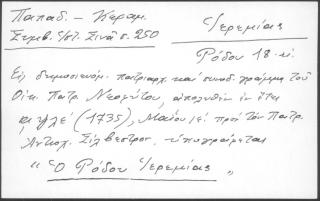 Παπαδ. - Κεραμ.
Συμβ. Ἱστ. Σινᾶ σ. 250
Ἱερεμίας
Ρόδου 18. αἰ.
Εἰς δημοσιευόμ. πατριαρχ. καὶ συνοδ. γράμμα τοῦ
Οἰκ. Πατρ. Νεοφύτου, ἀπολυθὲν ἐν ἔτει
αψλε (1735), Μαΐου ιε΄ πρὸς τὸν Πατρ.
Ἀντιοχ. Σίλβεστρον, ὑπογράφεται
“Ὁ Ρόδου Ἱερεμίας„